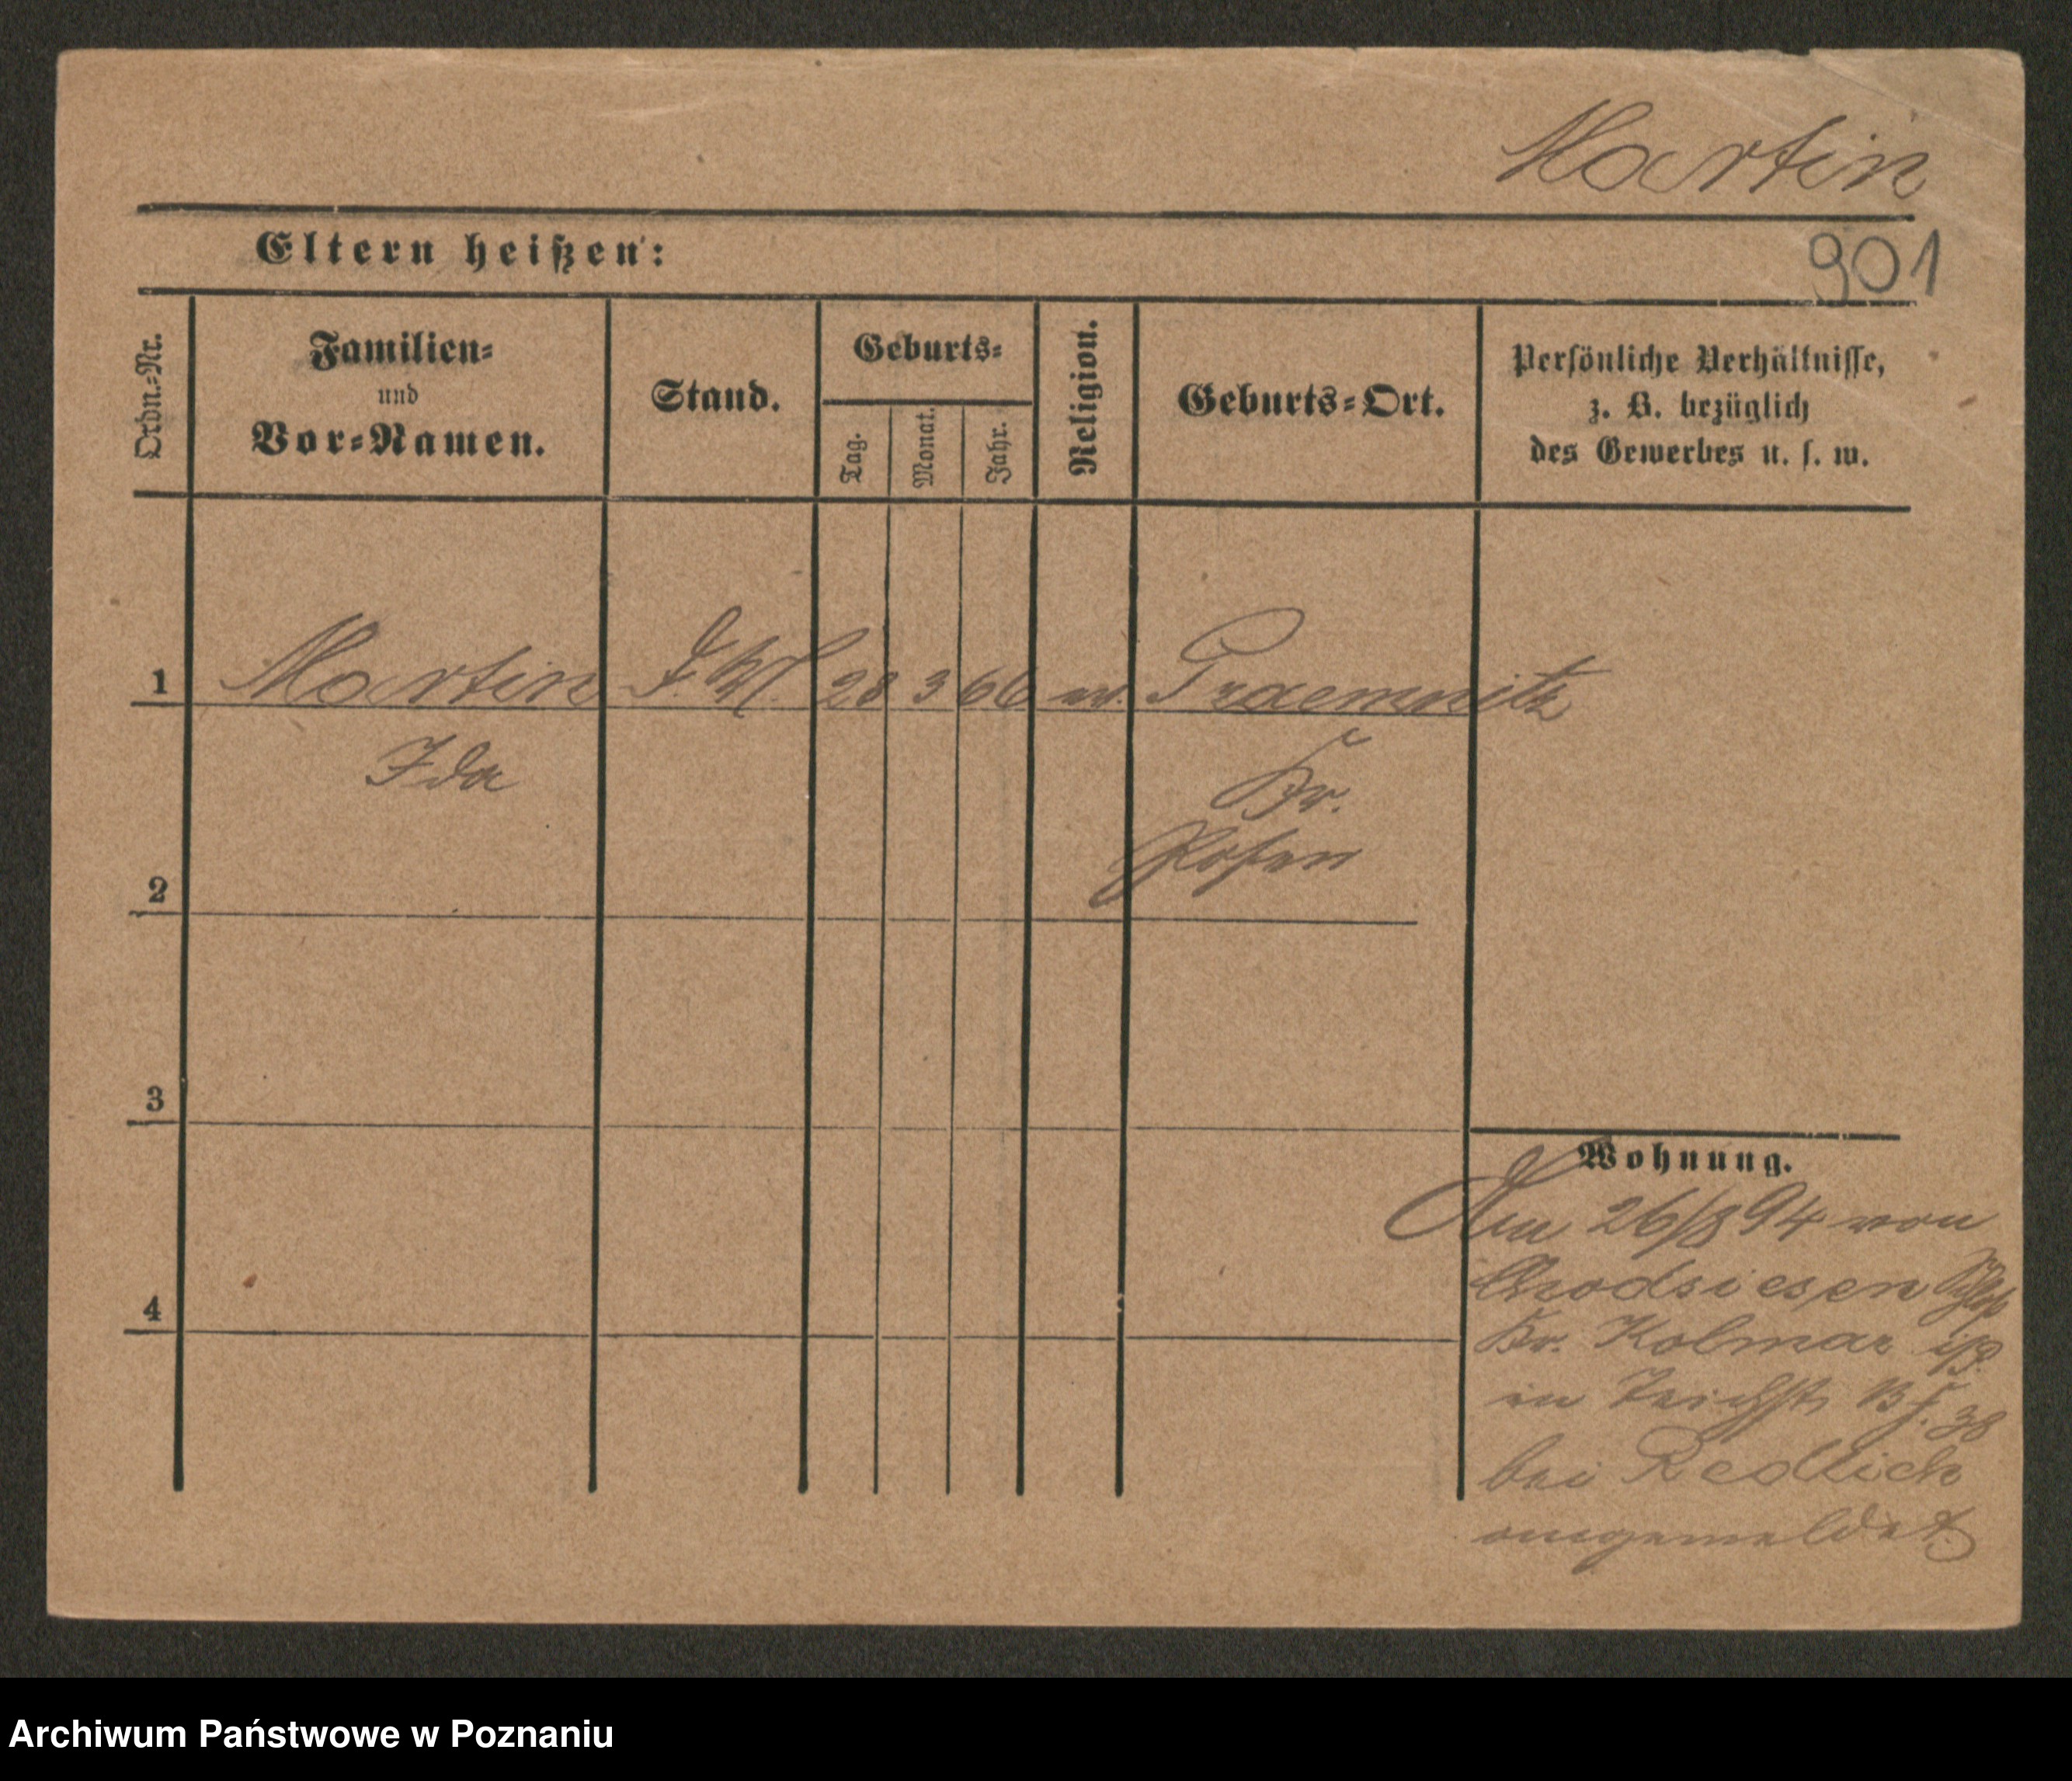 Martin
Eltern heißen:
901
Ordn.-Nr.
Familien-
und
Vor-Namen.
Stand.
Geburts-
Tag.
Monat.
Jahr.
Religion.
Geburts-Ort.
Persönliche Verhältnisse,
z. B. bezüglich
des Gewerbes u. s. w.
1 Martin 28 3 66
Ida
Kr.
Posen
2
3
4
Wohnung.
Am 26/8 94 von
Chodsiesen
Kr. Kolmar i/P.
in 38
bei Redlich
angemeldet
Archiwum Państwowe w Poznaniu